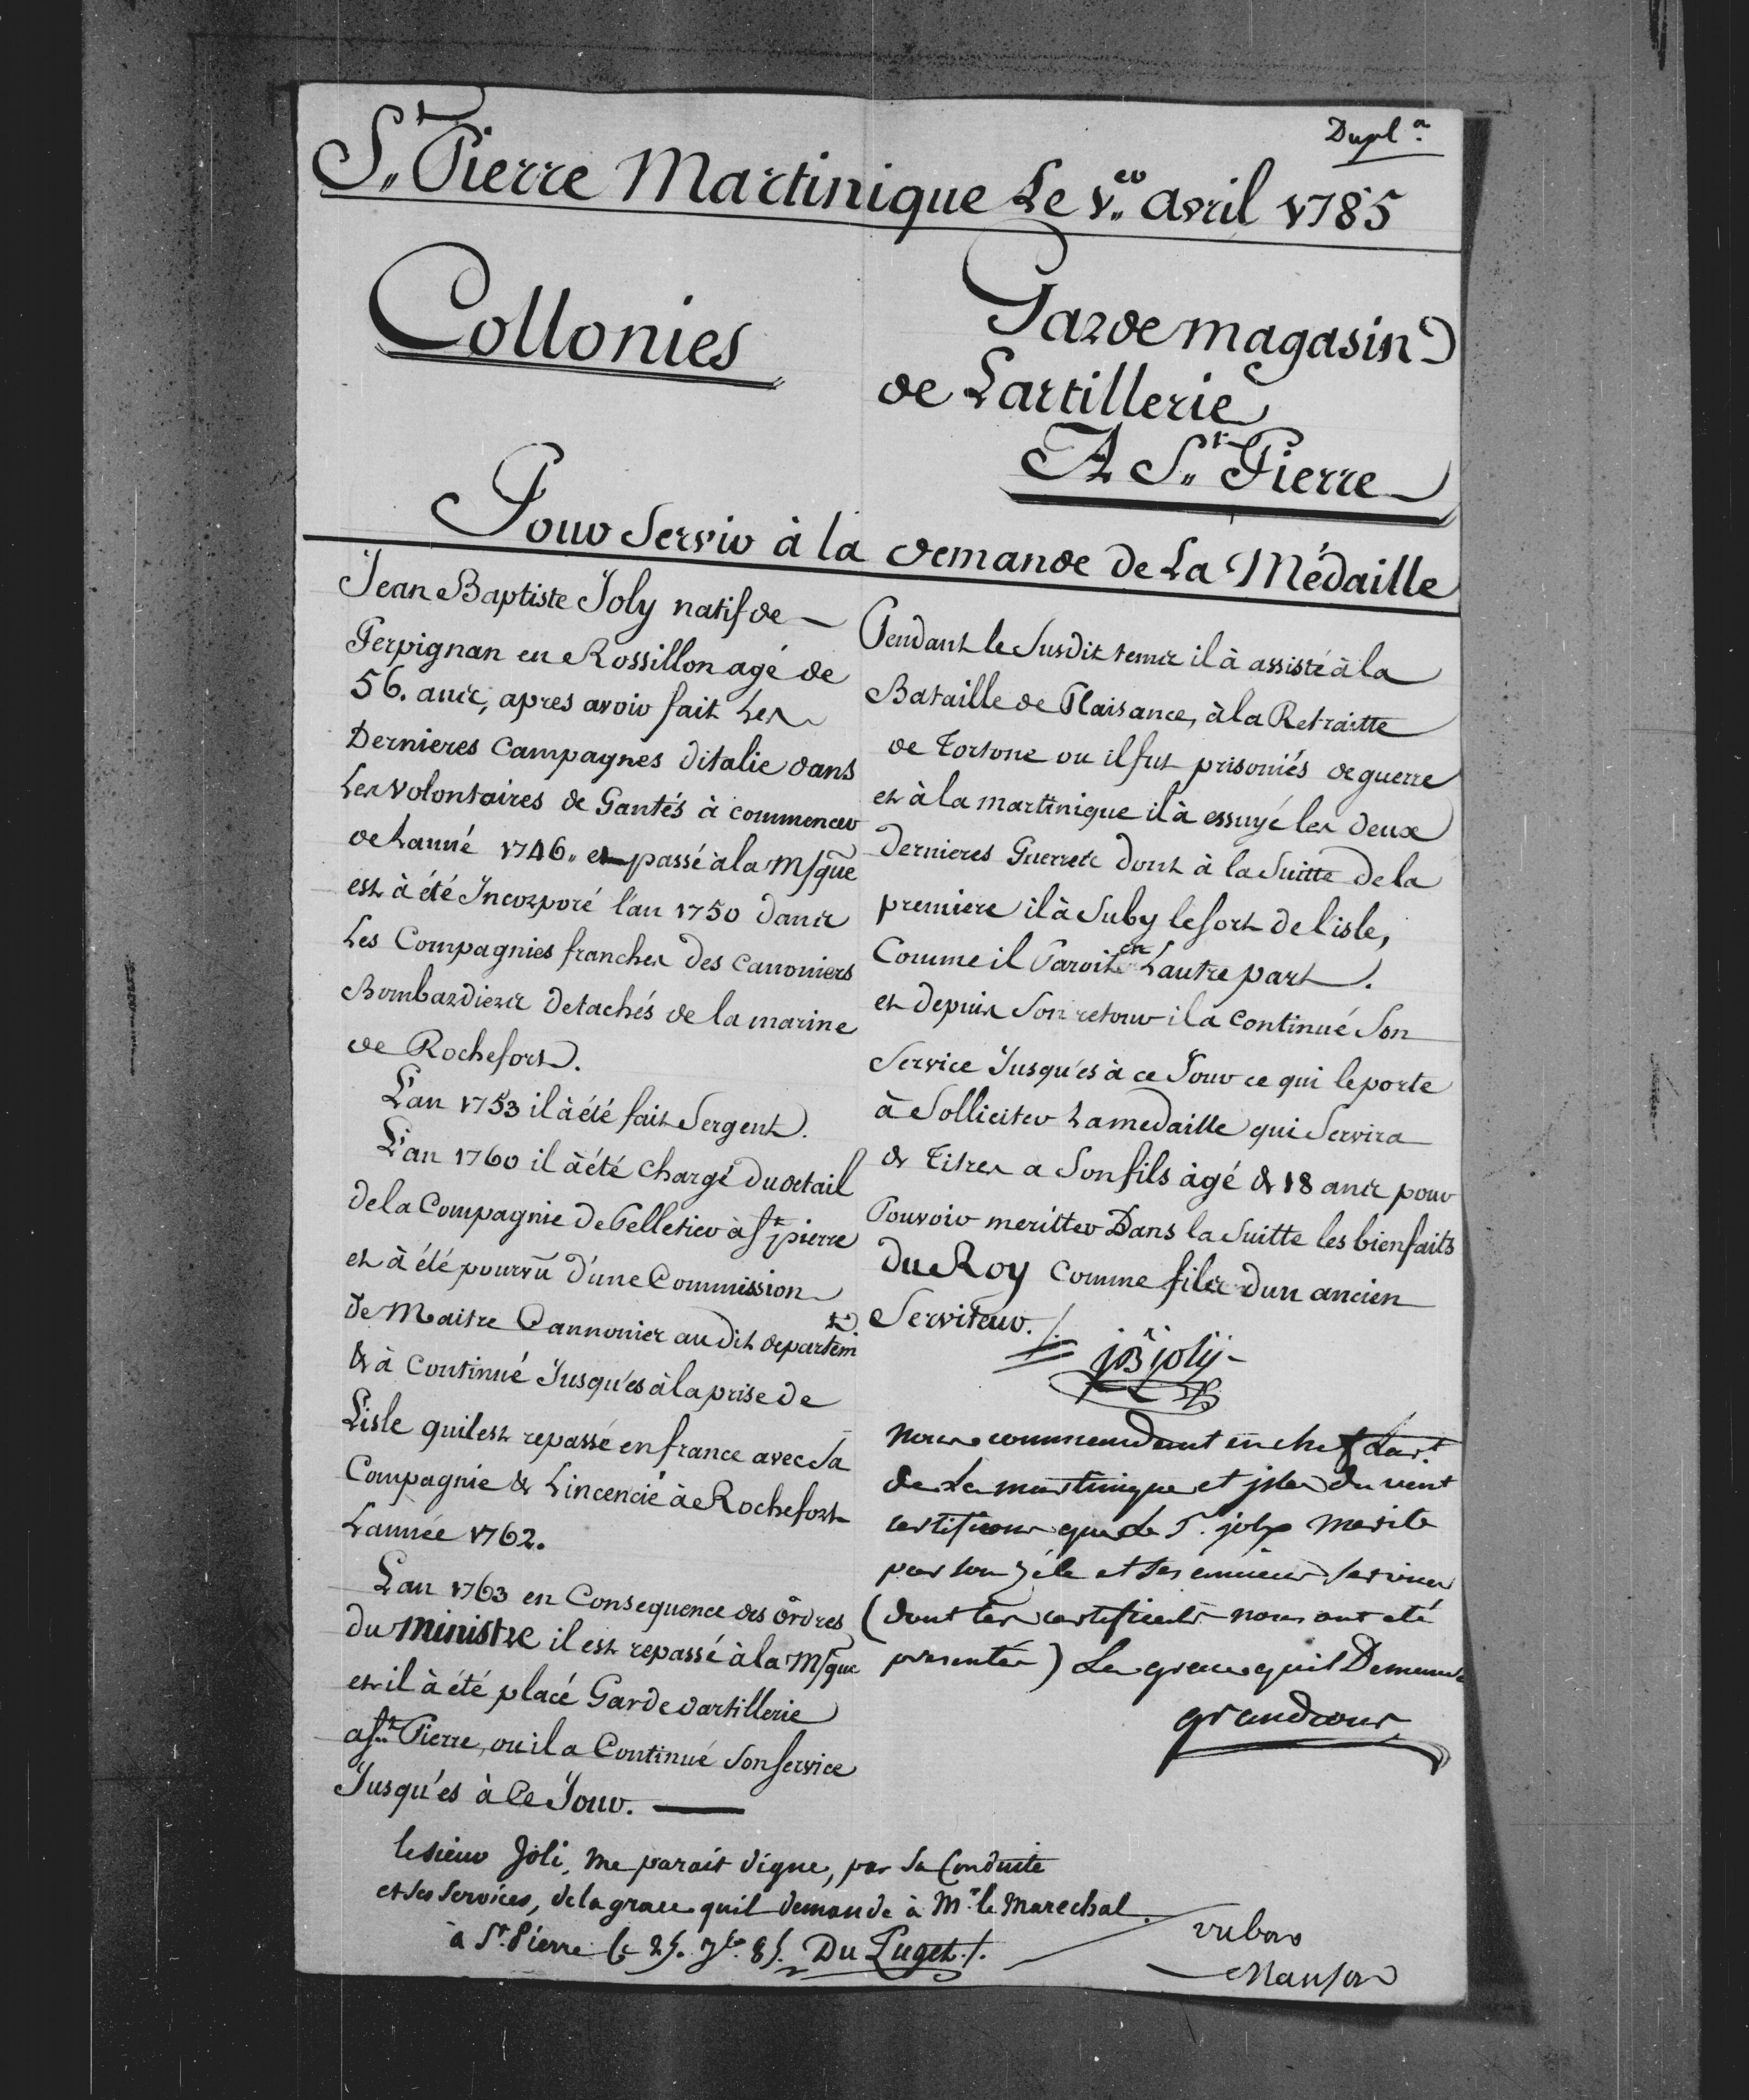 Dupl.a
St. Pierre Martinique Le 1.er avril 1785
Collonies
Garde magasin
de Lartillerie
A St. Pierre
Pour Servir à la demande de La Médaille
Jean Baptiste Joly natif de
Perpignan en Rossillon agé de
56. ans, apres avoir fait Les
Dernieres Campagnes ditalie dans
Les Volontaires de Gantés à commencer
de Lanné 1746. passé à la M/que
est à été Incorporé l'an 1750 dans
Les Compagnies franches des Canoniers
Bombardiers detachés de la marine
de Rochefort.
L'an 1753 il à été fait Sergent.
L'an 1760 il à été chargé du detail
de la Compagnie De Pelletier à St pierre
et à été pourvû d'une Commission
de Maitre Cannonier au dit departemt
& à Continué Jusqu'es à la prise de
Lisle quil est repassé en france avec Sa
Compagnie & Lincencié à Rochefort
Lannée 1762.
L'an 1763 en Consequence des ôrdres
du Ministre il est repassé à la M/que
et il à été placé Garde dartillerie
a St. Pierre, ou il a Continué Son Service
Jusqu'es à Ce Jour.
Pendant le Susdit tems il à assisté à la
Bataille de Plaisance, à la Retraitte
de Tortone ou il fut prisoniés de guerre
et à la martinique il à essuyé les deux
Dernieres Guerres dont à la Suitte de la
premiere il à Suby le sort de l'isle,
Comme il Paroit en Lautre part.
et depuis Son retour il a Continué Son
Service Jusqu'es à ce Jour ce qui le porte
à Solliciter La medaille qui Servira
de Titres a Son fils âgé de 18 ans pour
Pouvoir meritter Dans la Suitte les bienfaits
du Roy Comme fils dun ancien
Serviteur./.
jB joly
nous commendant en chef Lart.
de La martinique et isles du vent
certifions que le S. joly merite
par son zéle et ses anciens services
(dont les certificats nous ont eté
presentés) La grace quil Demande
grandcour
le sieur Joli, me parait digne, par Sa Conduite
et ses Services, de la grace quil demande à Mr. le Marechal.
à St. Pierre le 25. 7bre. 85. Du Puget./.
vu bon